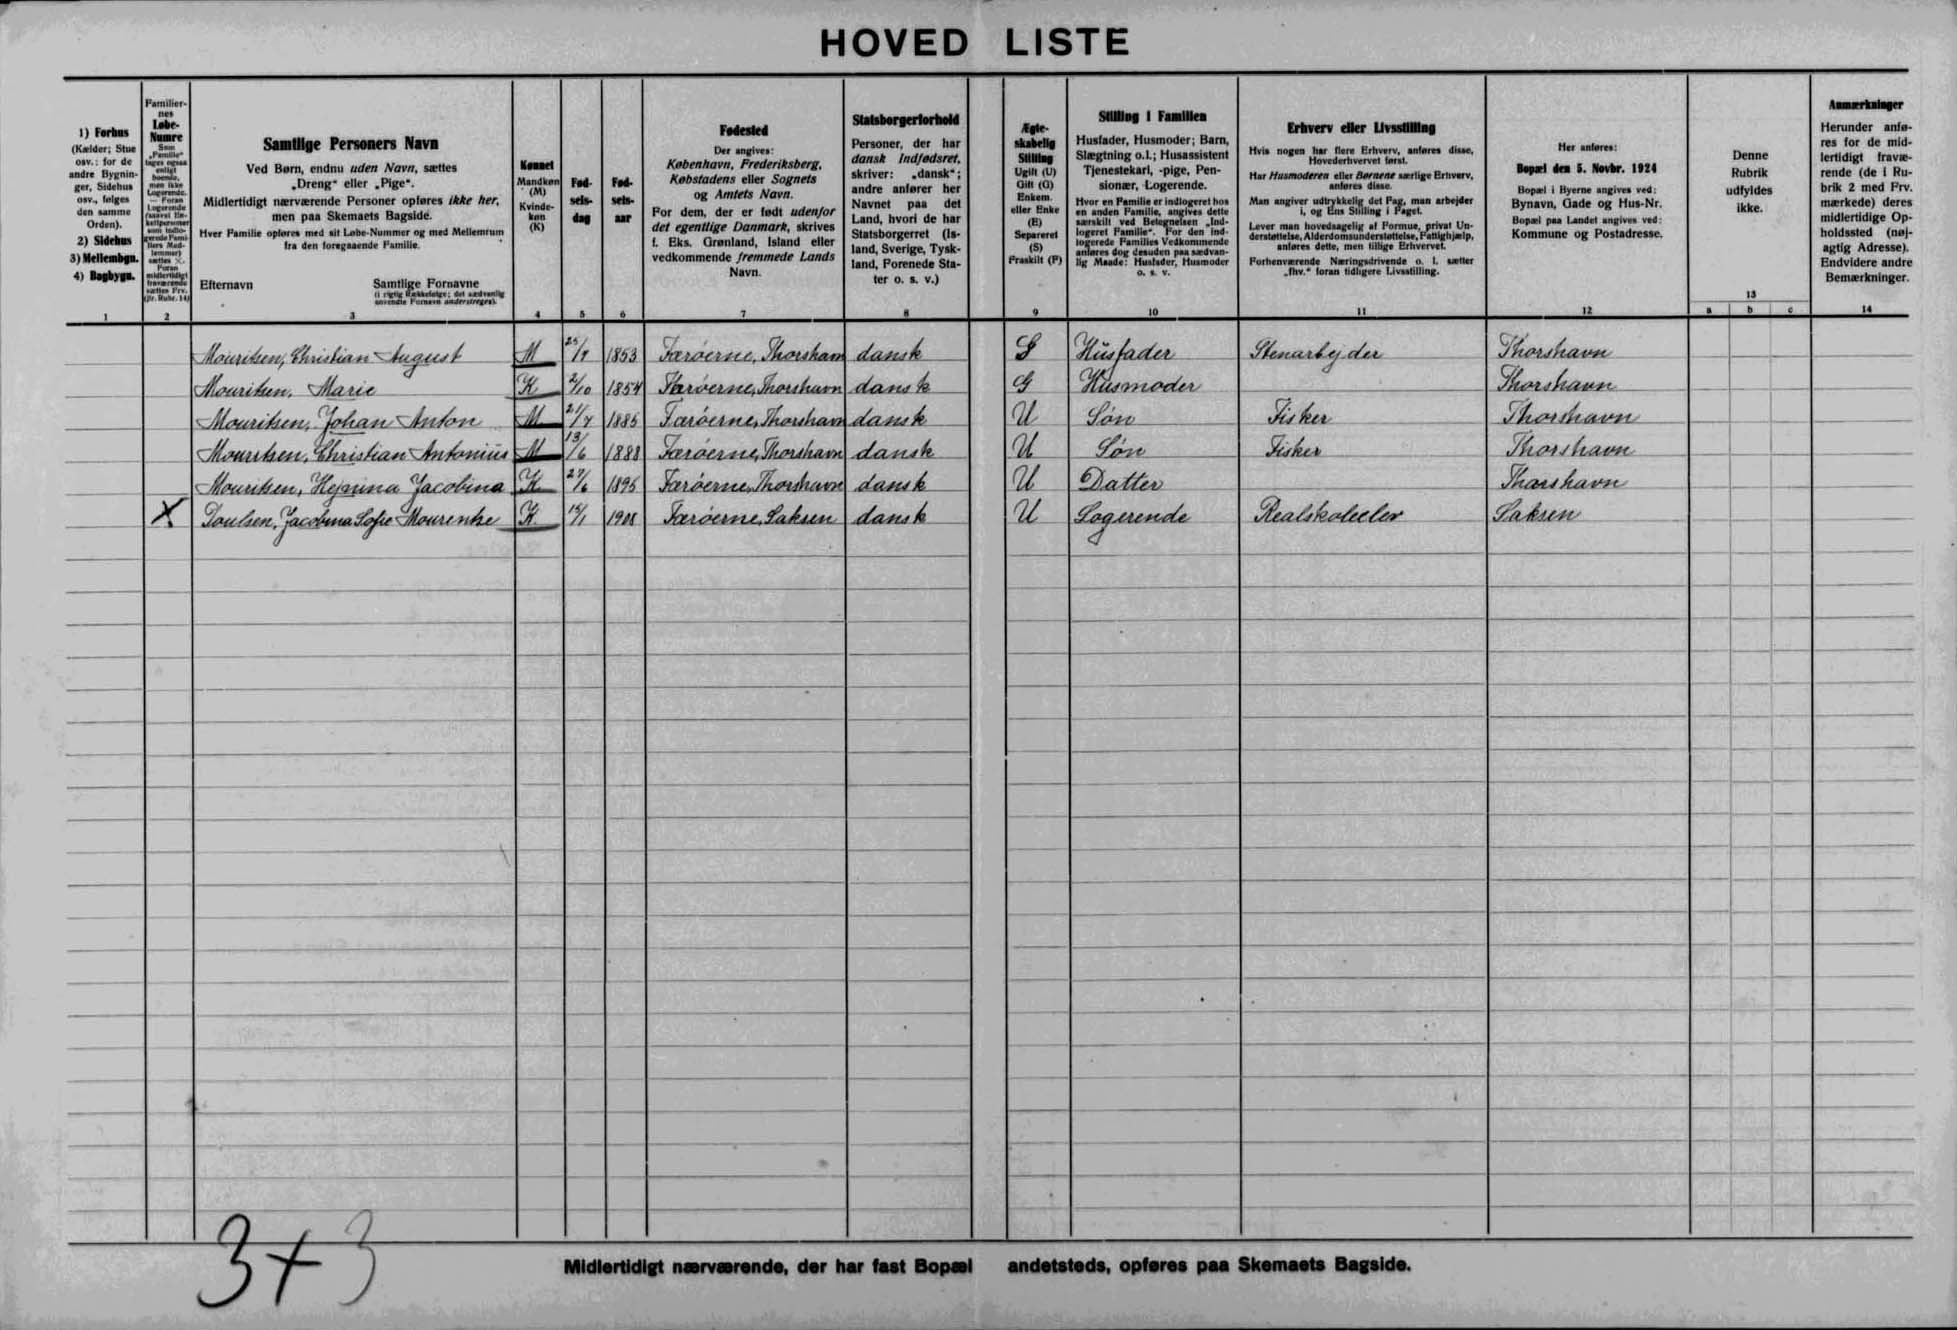 HOVED LISTE
1) Forhus
(Kælder; Stue
osv.: for de
andre Bygnin-
ger, Sidehus
osv., følges
den samme
Orden).
2) Sidehus
3) Mellembgn.
4) Bagbygn.
1
Familier-
nes
Løbe-
Numre
Som
„Familie“
tages ogsaa
enligt
boende,
men ikke
Logerende.
— Foran
Logerende
(saavel En-
keltpersoner
som indlo-
gerede Fami-
liers Med-
lemmer)
sættes ×.
Foran
midlertidigt
fraværende
sættes Frv.
(jfr. Rubr. 14)
2
Samtlige Personers Navn
Ved Børn, endnu uden Navn, sættes
„Dreng“ eller „Pige“.
Midlertidigt nærværende Personer opføres ikke her,
men paa Skemaets Bagside.
Hver Familie opføres med sit Løbe-Nummer og med Mellemrum
fra den foregaaende Familie.
Efternavn Samtlige Fornavne
(i rigtig Rækkefølge; det sædvanlig
anvendte Fornavn understreges).
3
Kønnet
Mandkøn
(M)
Kvinde-
køn
(K)
4
Fød-
sels-
dag
5
Fød-
sels-
aar
6
Fødested
Der angives:
København, Frederiksberg,
Købstadens eller Sognets
og Amtets Navn.
For dem, der er født udenfor
det egentlige Danmark, skrives
f. Eks. Grønland, Island eller
vedkommende fremmede Lands
Navn.
7
Statsborgerforhold
Personer, der har
dansk Indfødsret,
skriver: „dansk“;
andre anfører her
Navnet paa det
Land, hvori de har
Statsborgerret (Is-
land, Sverige, Tysk-
land, Forenede Sta-
ter o. s. v.)
8
Ægte-
skabelig
Stilling
Ugift (U)
Gift (G)
Enkem.
eller Enke
(E)
Separeret
(S)
Fraskilt (F)
9
Stilling i Familien
Husfader, Husmoder; Barn,
Slægtning o.l.; Husassistent
Tjenestekarl, -pige, Pen-
sionær, Logerende.
Hvor en Familie er indlogeret hos
en anden Familie, angives dette
særskilt ved Betegnelsen „Ind-
logeret Familie“. For den ind-
logerede Families Vedkommende
anføres dog desuden paa sædvan-
lig Maade: Husfader, Husmoder
o. s. v.
10
Erhverv eller Livsstilling
Hvis nogen har flere Erhverv, anføres disse,
Hovederhvervet først.
Har Husmoderen eller Børnene særlige Erhverv,
anføres disse.
Man angiver udtrykkelig det Fag, man arbejder
i, og Ens Stilling i Faget.
Lever man hovedsagelig af Formue, privat Un-
derstøttelse, Alderdomsunderstøttelse, Fattighjælp,
anføres dette, men tillige Erhvervet.
Forhenværende Næringsdrivende o. l. sætter
„fhv.“ foran tidligere Livsstilling.
11
Her anføres:
Bopæl den 5. Novbr. 1924
Bopæl i Byerne angives ved:
Bynavn, Gade og Hus-Nr.
Bopæl paa Landet angives ved:
Kommune og Postadresse.
12
Denne
Rubrik
udfyldes
ikke.
13
a b c
Anmærkninger
Herunder anfø-
res for de mid-
lertidigt fravæ-
rende (de i Ru-
brik 2 med Frv.
mærkede) deres
midlertidige Op-
holdssted (nøj-
agtig Adresse).
Endvidere andre
Bemærkninger.
14
Mouritsen, Christian August M 1853 Færøerne, Thorshavn dansk G Husfader Stenarbejder Thorshavn
Mouritsen, Marie K 2/10 1854 Færøerne, Thorshavn dansk G Husmoder Thorshavn
Mouritsen, Johan Anton M 21/7 1885 Færøerne, Thorshavn dansk U Søn Fisker Thorshavn
Mouritsen, Christian Antonius M 13/6 1888 Færøerne, Thorshavn dansk U Søn Fisker Thorshavn
Mouritsen, Hejnina Jacobina K 27/6 1895 Færøerne, Thorshavn dansk U Datter Thorshavn
X Poulsen, Jacobina Sofie Mourentse K. 1908 Færøerne, Saksen dansk U Logerende Realskoleelev Saksen
3+3
Midlertidigt nærværende, der har fast Bopæl andetsteds, opføres paa Skemaets Bagside.